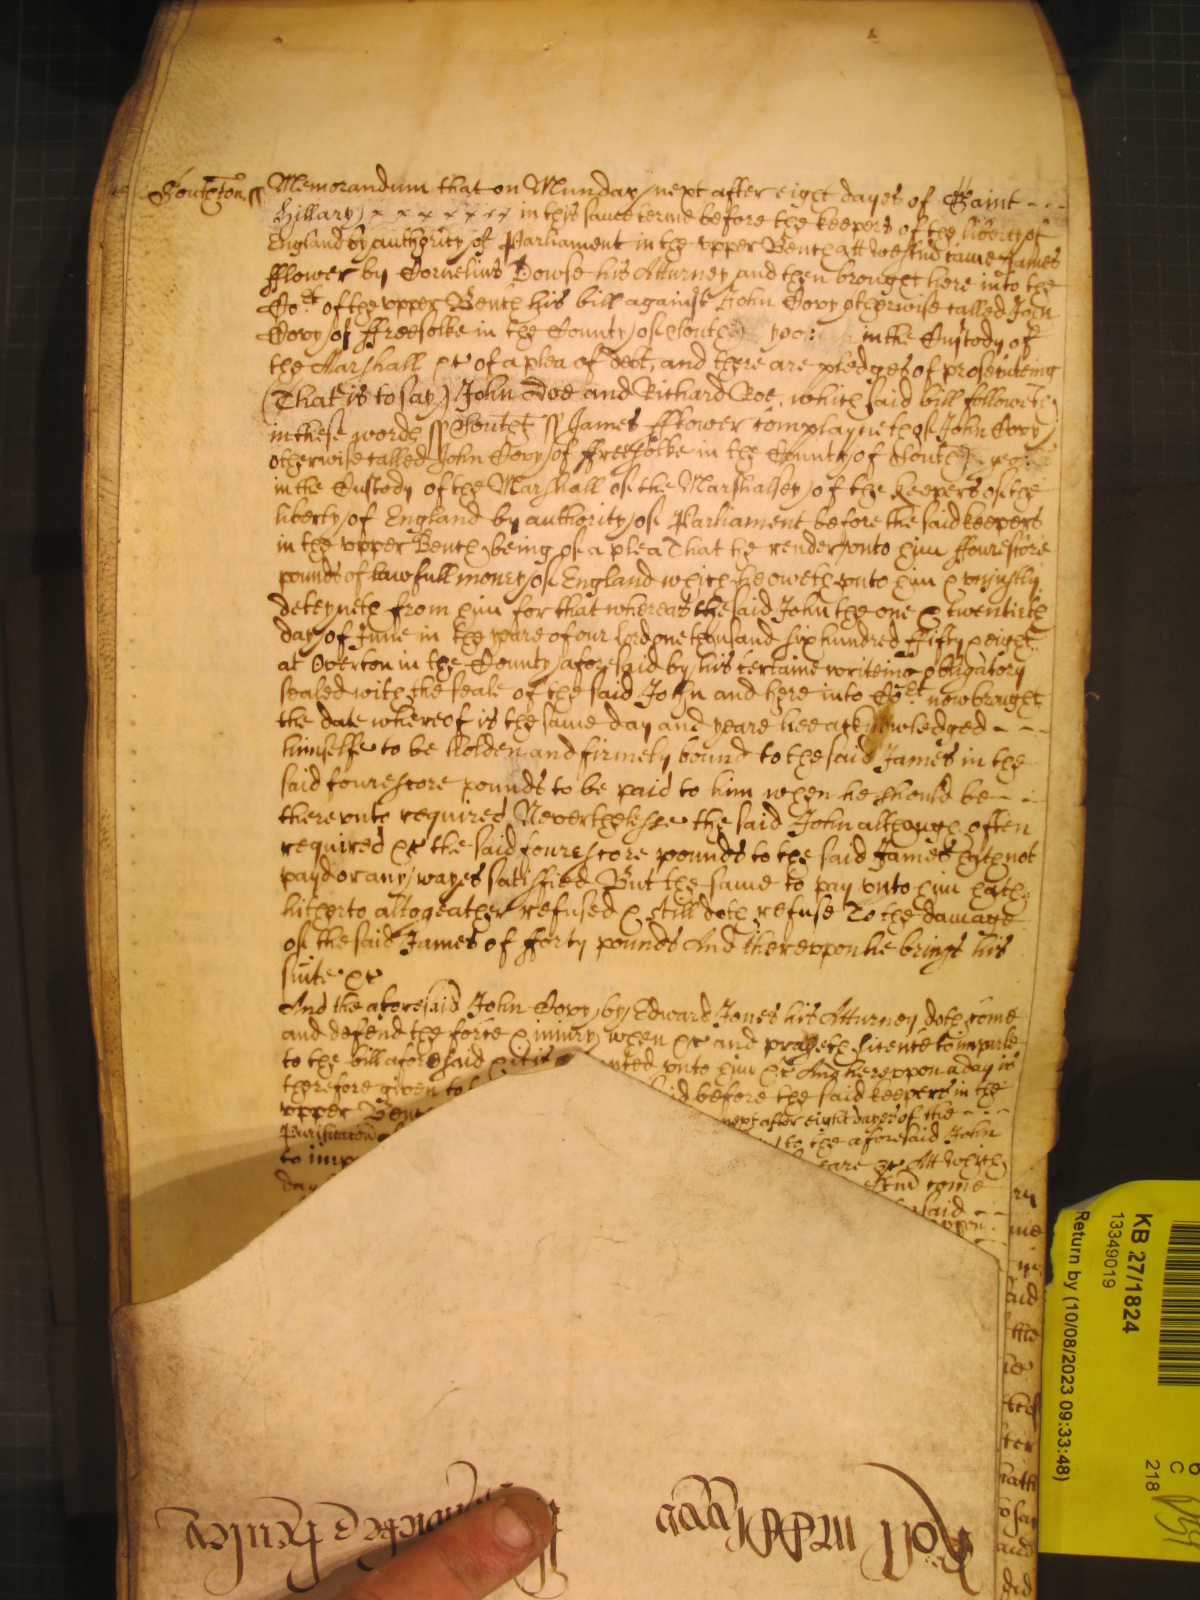 Southton ss Memorandum that on Munday next after eight dayes of Saint - - -
Hillary x x x x x x x in this same terme before the keepers of the liberty of
England by authority of Parliament in the upper Bench att Westmr came James
fflower by Cornelius Dowse his Atturney and then brought here into the
Cort of the upper Bench his bill against John Covy otherwise called John
Covy of ffreefolke in the County of South yeo: in the Custody of
the Marshall &c of a plea of debt, and there are pledges of prosecuteing
(That is to say) John Doe and Richard Roe, which said bill followeth
in these words ss Southt ss James fflower complayneth of John Covy
otherwise called John Covy of ffreefolke in the County of South yeo:
in the Custody of the Marshall of the Marshalsey of the keepers of the
liberty of England by authority of Parliament before the said keepers
in the upper Bench being of a plea That he render unto him ffourescore
pounds of lawfull money of England which he oweth unto him & unjustly
deteyneth from him for that whereas the said John the one & twentieth
day of June in the yeare of our lord one thousand six hundred ffifty & eight
at Overton in the County aforesaid by his certaine writeing obligatory
sealed with the seale of the said John and here into Cort now brought
the date whereof is the same day and yeare hee acknowledged - - -
himselfe to be holden and firmely bound to the said James in the
said fourescore pounds to be paid to him when he should be - - -
there unto required Neverthelesse the said John although often
required &c the said fourescore pounds to the said James hath not
payd or any wayes satisfied But the same to pay unto him hath
hitherto altogeather refused & still doth refuse To the damage
of the said James of forty pounds And thereuppon he brings his
suite &c
And the aforesaid John Covy by Edward Jones his Atturney doth come
and defend the force & injury when &c and prayeth licence to imparle
to the bill aforesaid & it is nted unto him &c And hereuppon a day is
therefore given to id before the said keepers in the
upper Benc next after eight dayes of the - - -
Purificacon to the aforesaid John
to imp eare &c Att which
day stmr come
said - -
uppon
KB 27/1824
13349019
Return by (10/08/2023 09:33:48)
6
C
218